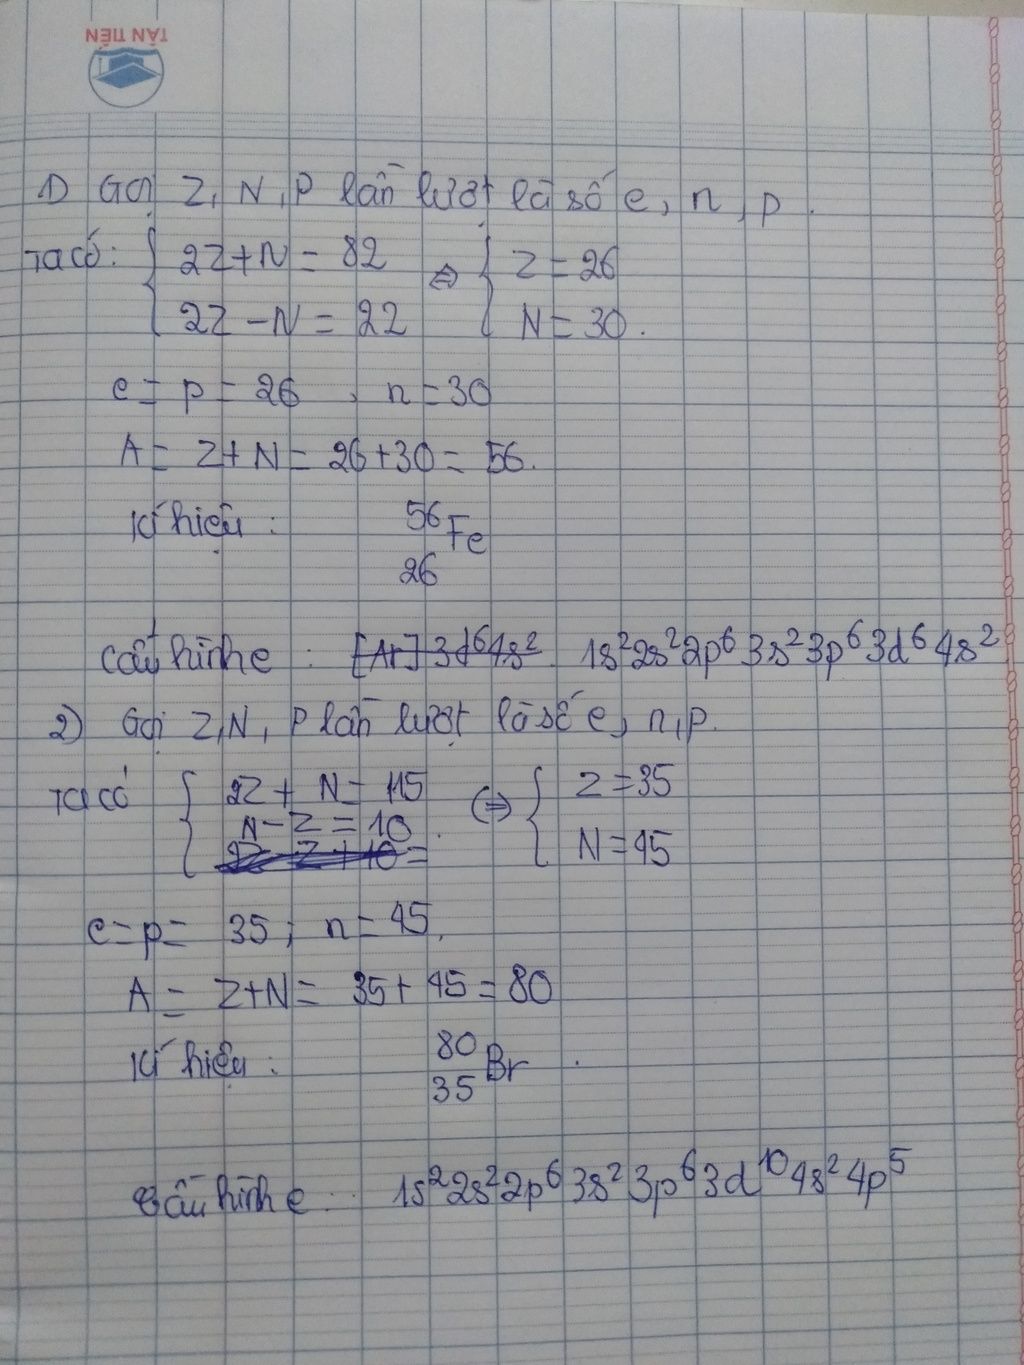 TÂN TIẾN
1) Gọi Z, N, P lần lượt là số e, n, p.
Ta có: { 2Z+N = 82 ⇔ { Z = 26
2Z - N = 22 N = 30.
e = p = 26, n = 30
A = Z + N = 26 + 30 = 56.
Kí hiệu: ⁵⁶₂₆Fe
Cấu hình e: [Ar] 3d⁶4s² 1s²2s²2p⁶3s²3p⁶3d⁶4s²
2) Gọi Z, N, P lần lượt là số e, n, p.
Ta có { 2Z + N = 115 (⇔) { Z = 35
N - Z = 10. N = 45
e = p = 35; n = 45.
A = Z+N = 35 + 45 = 80
Kí hiệu: ⁸⁰₃₅Br.
Cấu hình e: 1s²2s²2p⁶3s²3p⁶3d¹⁰4s²4p⁵